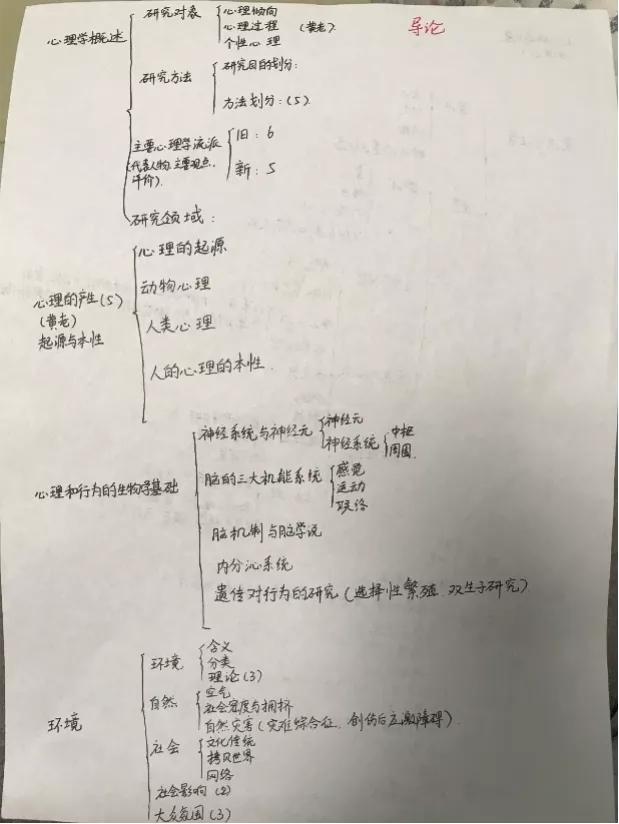 导论
心理学概述
研究对象
心理倾向
心理过程 (黄老)
个性心理
研究方法
研究目的划分:
方法划分:(5)
主要心理学流派
(代表人物、主要观点、
评价).
旧:6
新:5
研究领域:
心理的产生(5)
(黄老)
起源与本性
心理的起源
动物心理
人类心理
人的心理的本性.
心理和行为的生物学基础
神经系统与神经元
神经元
神经系统
中枢
周围
脑的三大机能系统
感觉
运动
联络
脑机制与脑学说
内分泌系统
遗传对行为的研究(选择性繁殖.双生子研究)
环境
环境
含义
分类
理论(3)
自然
空气
社会密度与拥挤
自然灾害(灾难综合征、创伤后应激障碍).
社会
文化传统
拷贝世界
网络
社会影响(2)
大众氛围(3)